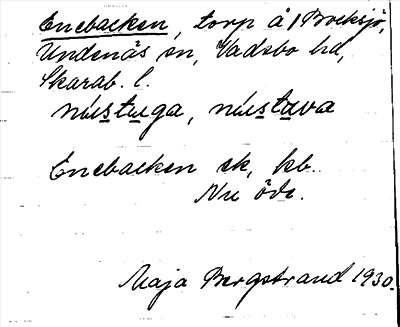 Enebacken, torp å 1 Bocksjö,
Undenäs sn, Vadsbo hd,
Skarab. l.
nústuga, nústava
Enebacken ek, kb.
Nu öde.
Maja Bergstrand 1930.